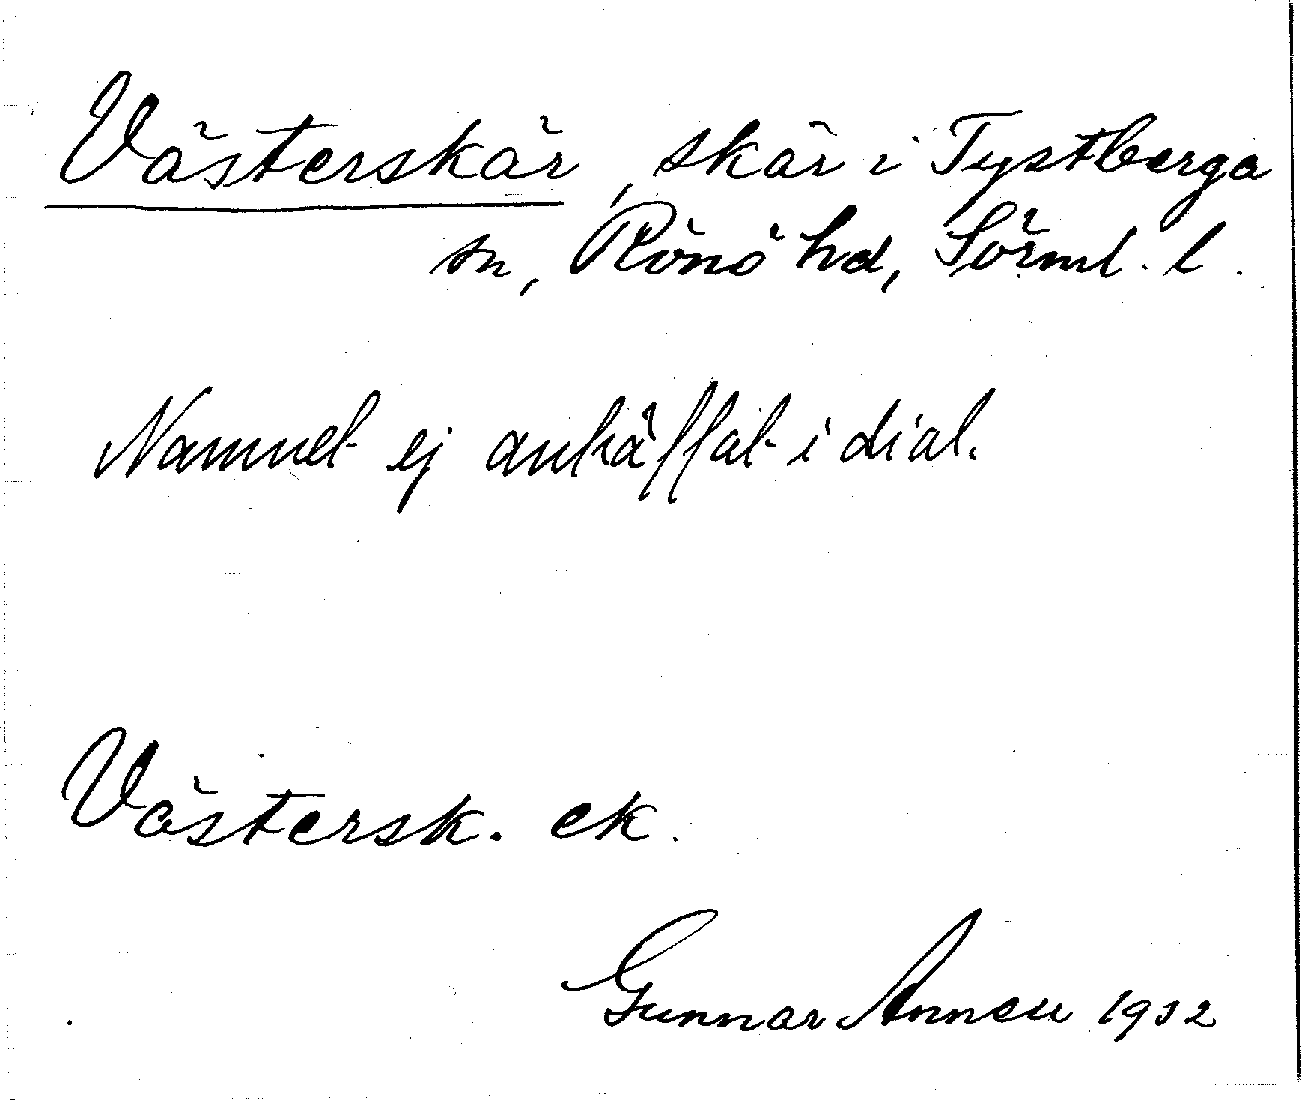 Västerskär, skär i Tystberga
sn, Rönö hd, Sörml. l.
Namnet ej anträffat i dial.
Västersk. ek.
Gunnar 1932